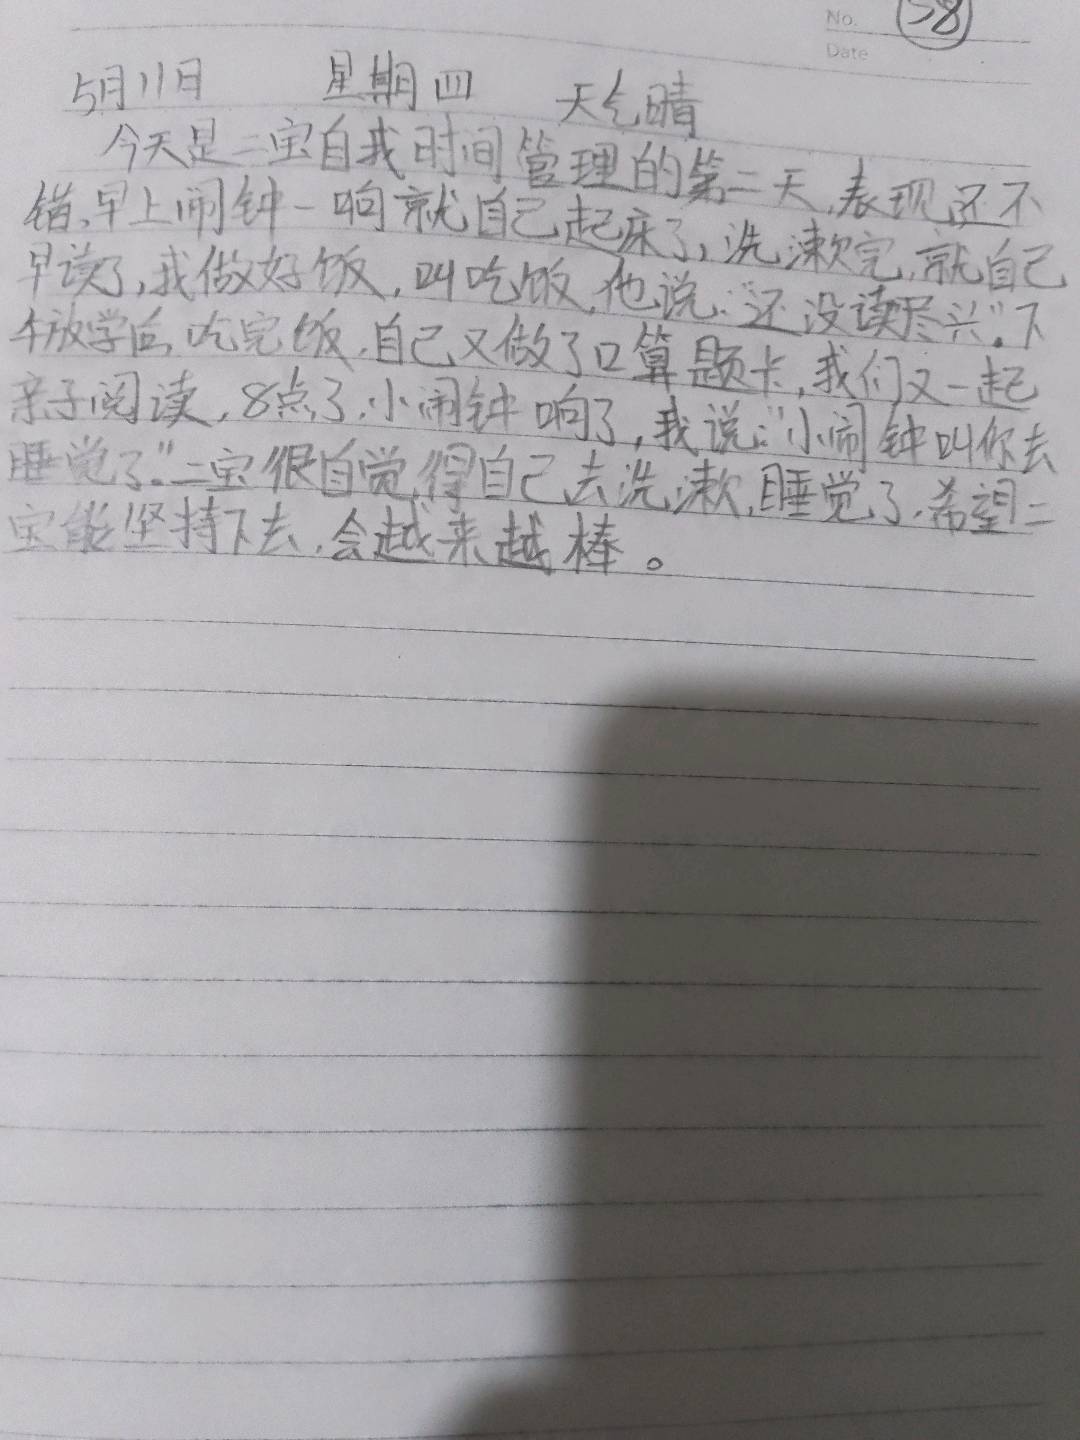 No. 58
Date
5月11日 星期四 天气晴
今天是二宝自我时间管理的第二天,表现还不
错,早上闹钟一响就自己起床了,洗漱完,就自己
早读了,我做好饭,叫吃饭,他说:“还没读尽兴”。下
午放学后,吃完饭,自己又做了口算题卡,我们又一起
亲子阅读,8点了,小闹钟响了,我说:“小闹钟叫你去
睡觉了。”二宝很自觉得自己去洗漱,睡觉了.希望二
宝能坚持下去,会越来越棒。